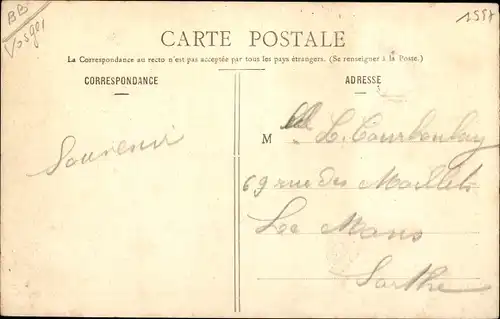 BB
Vosges
1557
CARTE POSTALE
La Correspondance au recto n'est pas acceptée par tous les pays étrangers. (Se renseigner à la Poste.)
CORRESPONDANCE
ADRESSE
Souvenir
M lle L. Courboulay
69 rue des Maillets
Le Mans
Sarthe